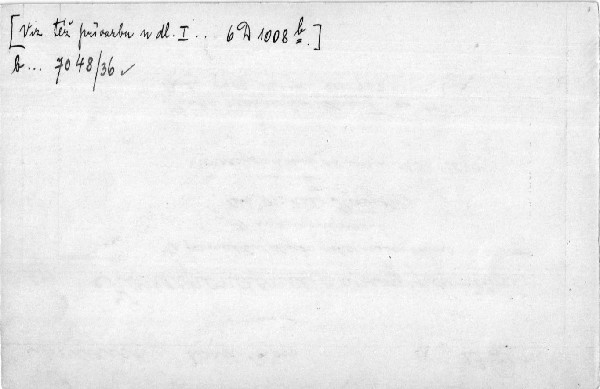 [Viz též přívazbu u dl. I... 6 D 1008 b.]
b... 7048/36 ✓